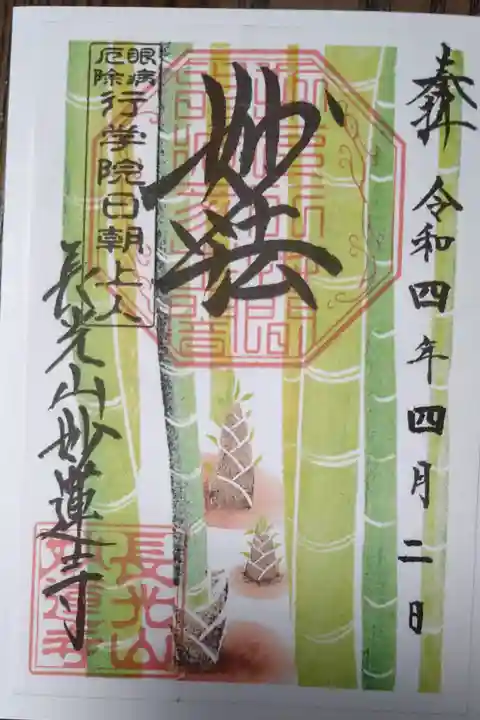 奉拝 令和四年四月二日
妙法
眼病
厄除
行学院日朝上人
長光山妙蓮寺
長光山
妙蓮寺